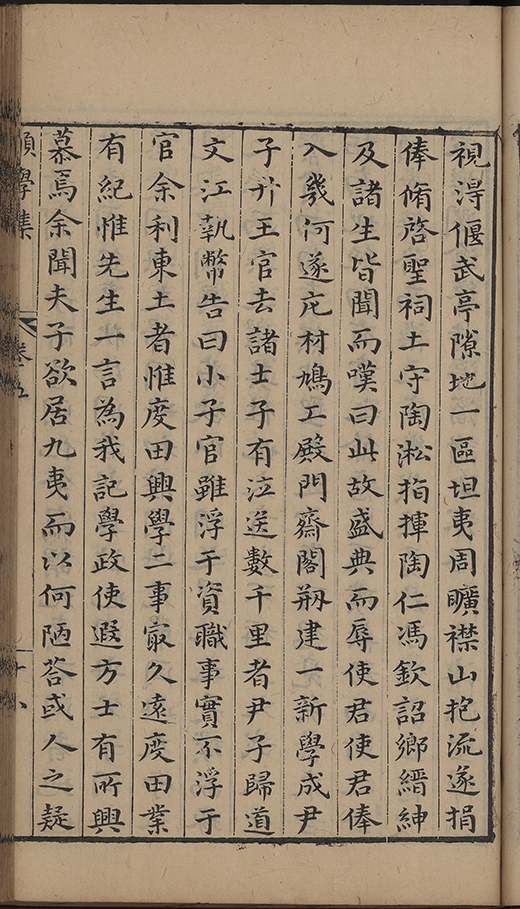 視淂偃武亭隙地一區坦夷周曠襟山抱流遂捐
俸脩啓聖祠土守陶淞指揮陶仁馮欽詔鄉縉紳
及諸生皆聞而嘆曰此故盛典而辱使君使君俸
入㡬何遂庀材鳩工殿門齋閣剏建一新學成尹
子升王官去諸士子有泣送數千里者尹子歸道
文江執幣告曰小子官雖浮于資職事實不浮于
官余利東土者惟度田興學二事㝡久遠度田業
有紀惟先生一言為我記學政使遐方士有所興
慕焉余聞夫子欲居九夷而以何陋荅或人之疑
學集 卷五 十八